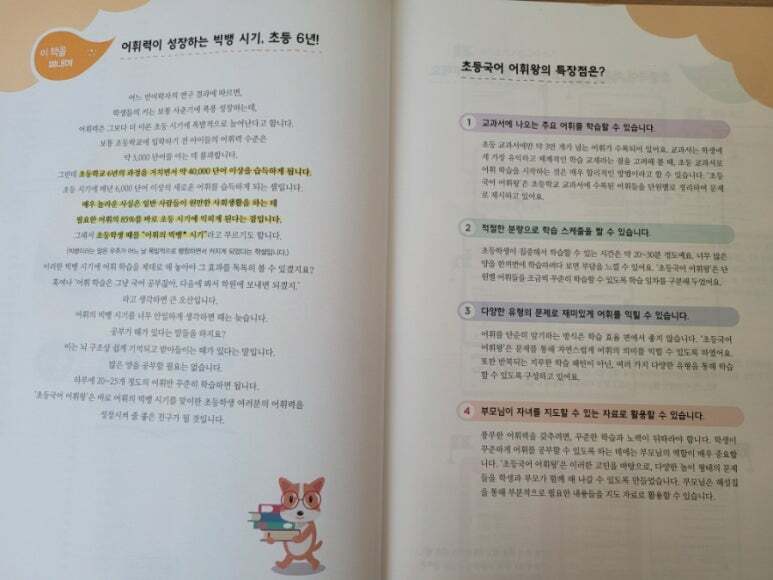 이 책을
펴내며
어휘력이 성장하는 빅뱅 시기, 초등 6년!
어느 언어학자의 연구 결과에 따르면,
학생들의 키는 보통 사춘기에 폭풍 성장하는데,
어휘력은 그보다 더 이른 초등 시기에 폭발적으로 늘어난다고 합니다.
보통 초등학교에 입학하기 전 아이들의 어휘력 수준은
약 3,000 단어를 아는 데 불과합니다.
그런데 초등학교 6년의 과정을 거치면서 약 40,000 단어 이상을 습득하게 됩니다.
초등 시기에 매년 6,000 단어 이상의 새로운 어휘를 습득하게 되는 셈입니다.
매우 놀라운 사실은 일반 사람들이 원만한 사회생활을 하는 데
필요한 어휘의 85%를 바로 초등 시기에 익히게 된다는 점입니다.
그래서 초등학생 때를 "어휘의 빅뱅* 시기"라고 부르기도 합니다.
(빅뱅이라는 말은 우주가 어느 날 폭발적으로 팽창하면서 커지게 되었다고 하는 학설입니다.)
이러한 빅뱅 시기에 어휘 학습을 제대로 해 놓아야 그 효과를 톡톡히 볼 수 있겠지요?
혹여나 '어휘 학습은 그냥 국어 공부잖아, 다음에 봐서 학원에 보내면 되겠지.'
라고 생각하면 큰 오산입니다.
어휘의 빅뱅 시기를 너무 안일하게 생각하면 때는 늦습니다.
공부가 때가 있다는 말들을 하지요?
이는 뇌 구조상 쉽게 기억되고 받아들이는 때가 있다는 말입니다.
많은 양을 공부할 필요는 없습니다.
하루에 20~25개 정도의 어휘만 꾸준히 학습하면 됩니다.
'초등국어 어휘왕'은 바로 어휘의 빅뱅 시기를 맞이한 초등학생 여러분의 어휘력을
성장시켜 줄 좋은 친구가 될 것입니다.
초등국어 어휘왕의 특장점은?
1 교과서에 나오는 주요 어휘를 학습할 수 있습니다.
초등 교과서에만 약 3만 개가 넘는 어휘가 수록되어 있어요. 교과서는 학생에
게 가장 유익하고 체계적인 학습 교재라는 점을 고려해 볼 때, 초등 교과서로
어휘 학습을 시작하는 것은 매우 합리적인 방법이라고 할 수 있습니다. '초등
국어 어휘왕'은 초등학교 교과서에 수록된 어휘들을 단원별로 정리하여 문제
로 제시하고 있어요.
2 적절한 분량으로 학습 스케줄을 짤 수 있습니다.
초등학생이 집중해서 학습할 수 있는 시간은 약 20~30분 정도예요. 너무 많은
양을 한꺼번에 학습하려다 보면 부담을 느낄 수 있어요. '초등국어 어휘왕'은 단
원별 어휘들을 조금씩 꾸준히 학습할 수 있도록 학습 일차를 구분해 두었어요.
3 다양한 유형의 문제로 재미있게 어휘를 익힐 수 있습니다.
어휘를 단순히 암기하는 방식은 학습 효율 면에서 좋지 않습니다. '초등국어
어휘왕'은 문제를 통해 자연스럽게 어휘의 의미를 익힐 수 있도록 하였어요.
또한 반복되는 지루한 학습 패턴이 아닌, 여러 가지 다양한 유형을 통해 학습
할 수 있도록 구성하고 있어요.
4 부모님이 자녀를 지도할 수 있는 자료로 활용할 수 있습니다.
풍부한 어휘력을 갖추려면, 꾸준한 학습과 노력이 뒤따라야 합니다. 학생이
꾸준하게 어휘를 공부할 수 있도록 하는 데에는 부모님의 역할이 매우 중요합
니다. '초등국어 어휘왕'은 이러한 고민을 바탕으로, 다양한 놀이 형태의 문제
들을 학생과 부모가 함께 해 나갈 수 있도록 만들었습니다. 부모님은 해설집
을 통해 부분적으로 필요한 내용들을 지도 자료로 활용할 수 있습니다.